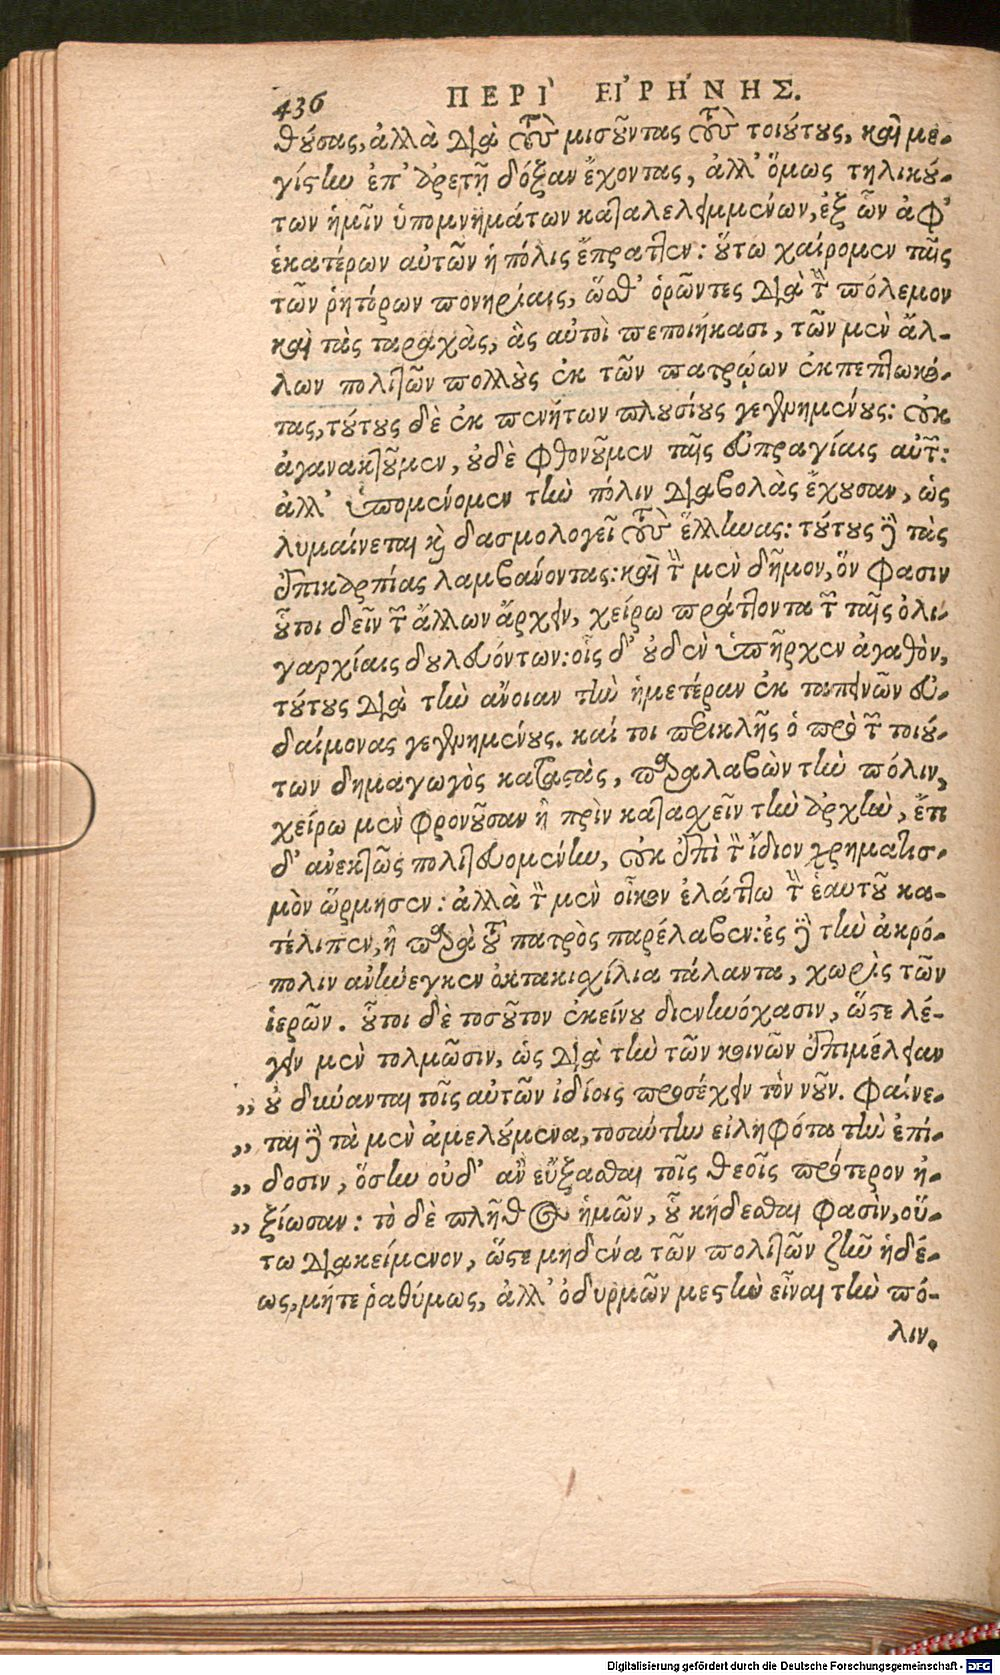 436 ΠΕΡΙ ΕΙΡΗΝΗΣ.
θύσας, ἀλλὰ διὰ τοὺς μισοῦντας τοὺς τοιούτους, καὶ με-
γίστην ἐπ' ἀρετῇ δόξαν ἔχοντας, ἀλλ' ὅμως τηλικού-
των ἡμῖν ὑπομνημάτων καταλελειμμένων, ἐξ ὧν ἀφ'
ἑκατέρων αὐτῶν ἡ πόλις ἔπραττεν: οὕτω χαίρομεν ταῖς
τῶν ῥητόρων πονηρίαις, ὥσθ' ὁρῶντες διὰ τὸν πόλεμον
καὶ τὰς ταραχὰς, ἃς αὐτοὶ πεποιήκασι, τῶν μὲν ἄλ-
λων πολιτῶν πολλοὺς ἐκ τῶν πατρῴων ἐκπεπτωκό-
τας, τούτους δὲ ἐκ πενήτων πλουσίους γεγενημένους: οὐκ
ἀγανακτοῦμεν, οὐδὲ φθονοῦμεν ταῖς εὐπραγίαις αὐτῶν:
ἀλλ' ὑπομένομεν τὴν πόλιν διαβολὰς ἔχουσαν, ὡς
λυμαίνεται καὶ δασμολογεῖ τοὺς ἕλληνας: τούτους δὲ τὰς
ἐπικαρπίας λαμβάνοντας: καὶ τὸν μὲν δῆμον, ὅν φασιν
οὗτοι δεῖν τῶν ἄλλων ἄρχειν, χείρω πράττοντα τῶν ταῖς ὀλι-
γαρχίαις δουλευόντων: οἷς δ' οὐδὲν ὑπῆρχεν ἀγαθὸν,
τούτους διὰ τὴν ἄνοιαν τὴν ἡμετέραν ἐκ ταπεινῶν εὐ-
δαίμονας γεγενημένους. καί τοι περικλῆς ὁ πρὸ τῶν τοιού-
των δημαγωγὸς καταστὰς, παραλαβὼν τὴν πόλιν,
χείρω μὲν φρονοῦσαν ἢ πρὶν κατασχεῖν τὴν ἀρχὴν, ἔτι
δ' ἀνεκτῶς πολιτευομένην, οὐκ ἐπὶ τὸν ἴδιον χρηματισ-
μὸν ὥρμησεν: ἀλλὰ τὸν μὲν οἶκον ἐλάττω τὸν ἑαυτοῦ κα-
τέλιπεν, ἢ παρὰ τοῦ πατρὸς παρέλαβεν: ἐς δὲ τὴν ἀκρό-
πολιν ἀνήνεγκεν ὀκτακισχίλια τάλαντα, χωρὶς τῶν
ἱερῶν. οὗτοι δὲ τοσοῦτον ἐκείνου διενηνόχασιν, ὥστε λέ-
γειν μὲν τολμῶσιν, ὡς διὰ τὴν τῶν κοινῶν ἐπιμέλειαν
,, οὐ δύνανται τοῖς αὑτῶν ἰδίοις προσέχειν τὸν νοῦν. Φαίνε-
,, ται δὲ τὰ μὲν ἀμελούμενα, τοσαύτην εἰληφότα τὴν ἐπί-
,, δοσιν, ὅσην οὐδ' ἂν εὔξασθαι τοῖς θεοῖς πρότερον ἠ-
,, ξίωσαν: τὸ δὲ πλῆθος ἡμῶν, οὗ κήδεσθαι φασὶν, οὕ-
τω διακείμενον, ὥστε μηδένα τῶν πολιτῶν ζῆν ἡδέ-
ως, μήτε ῥαθύμως, ἀλλ' ὀδυρμῶν μεστὴν εἶναι τὴν πό-
λιν.
Digitalisierung gefördert durch die Deutsche Forschungsgemeinschaft - DFG